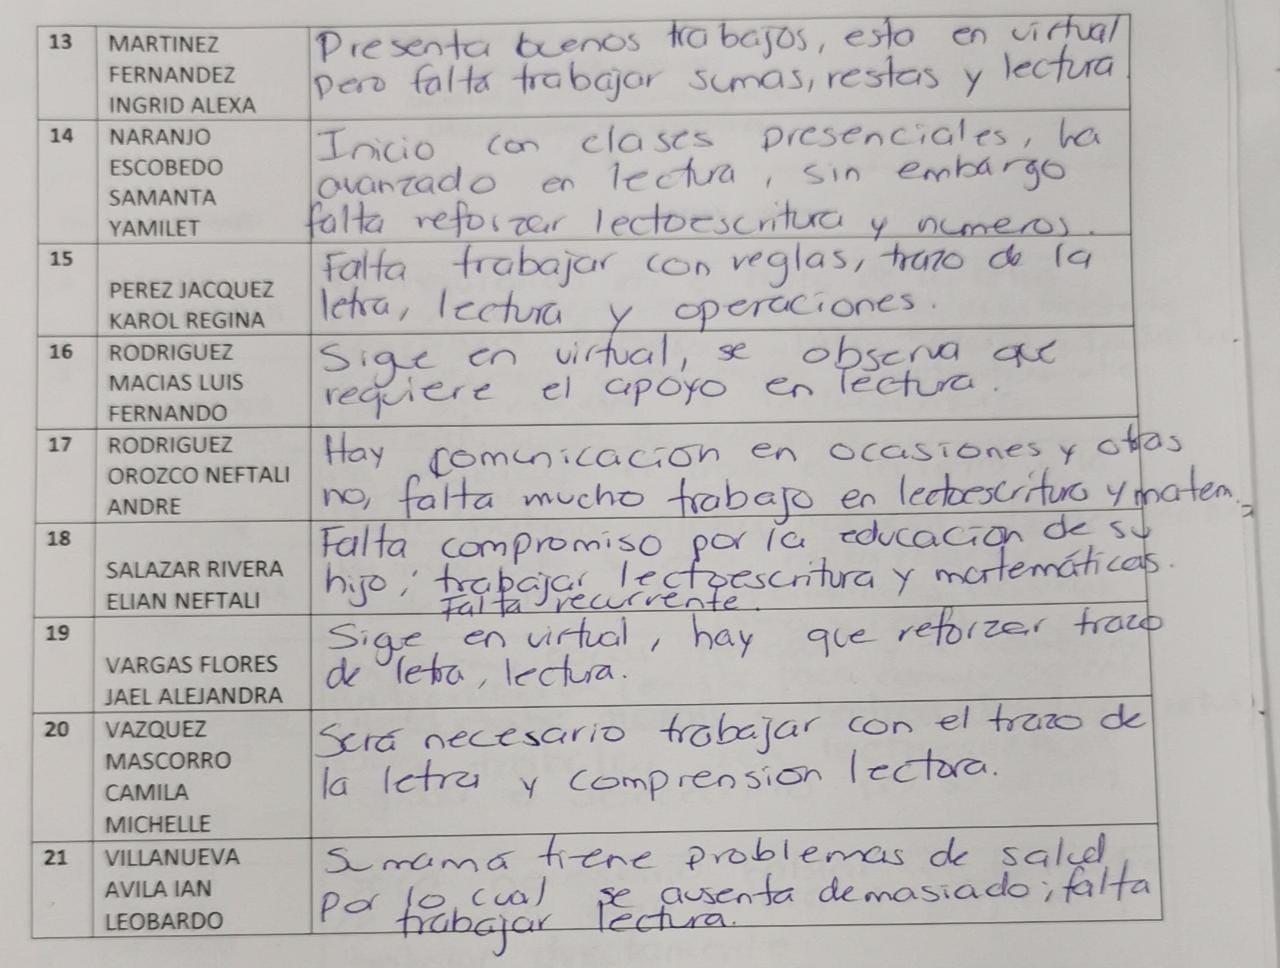 13
MARTINEZ
FERNANDEZ
INGRID ALEXA
Presenta buenos trabajos, esta en virtual
pero falta trabajar sumas, restas y lectura
14
NARANJO
ESCOBEDO
SAMANTA
YAMILET
Inicio con clases presenciales, ha
avanzado en lectura, sin embargo
falta reforzar lectoescritura y numeros.
15
PEREZ JACQUEZ
KAROL REGINA
Falta trabajar con reglas, trazo de la
letra, lectura y operaciones.
16
RODRIGUEZ
MACIAS LUIS
FERNANDO
Sige en virtual, se observa que
requiere el apoyo en lectura.
17
RODRIGUEZ
OROZCO NEFTALI
ANDRE
Hay comunicacion en ocasiones y otras
no, falta mucho trabajo en lectoescritura y matem.
18
SALAZAR RIVERA
ELIAN NEFTALI
Falta compromiso por la educacion de su
hijo, trabajar lectoescritura y matemáticas.
Falta recurrente.
19
VARGAS FLORES
JAEL ALEJANDRA
Sige en virtual, hay que reforzar trazo
de letra, lectura.
20
VAZQUEZ
MASCORRO
CAMILA
MICHELLE
Será necesario trabajar con el trazo de
la letra y comprension lectora.
21
VILLANUEVA
AVILA IAN
LEOBARDO
Su mamá tiene problemas de salud,
por lo cual se ausenta demasiado; falta
trabajar lectura.